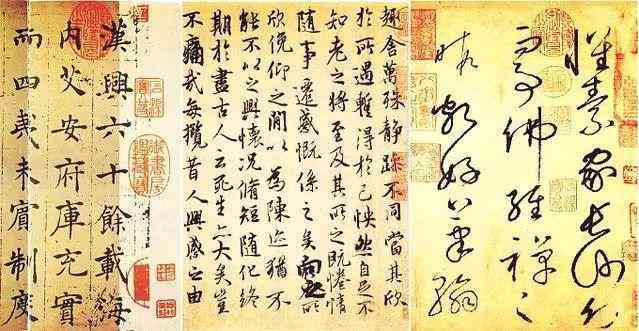 懷素家長沙幼而
事佛經禪之
暇頗好筆翰
趣舍萬殊静躁不同當其欣
於所遇蹔得於己怏然自足不
知老之將至及其所之既惓情
隨事遷感慨係之矣向之所
欣俛仰之閒以爲陳迹猶不
能不以之興懷況脩短隨化終
期於盡古人云死生亦大矣豈
不痛哉每攬昔人興感之由
漢興六十餘載海
内艾安府庫充實
而四夷未賓制度